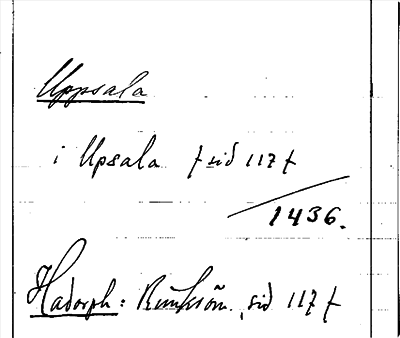 Uppsala
i Upsala f sid 117 f
1436.
Hadorph: Rimkrön. sid 117 f